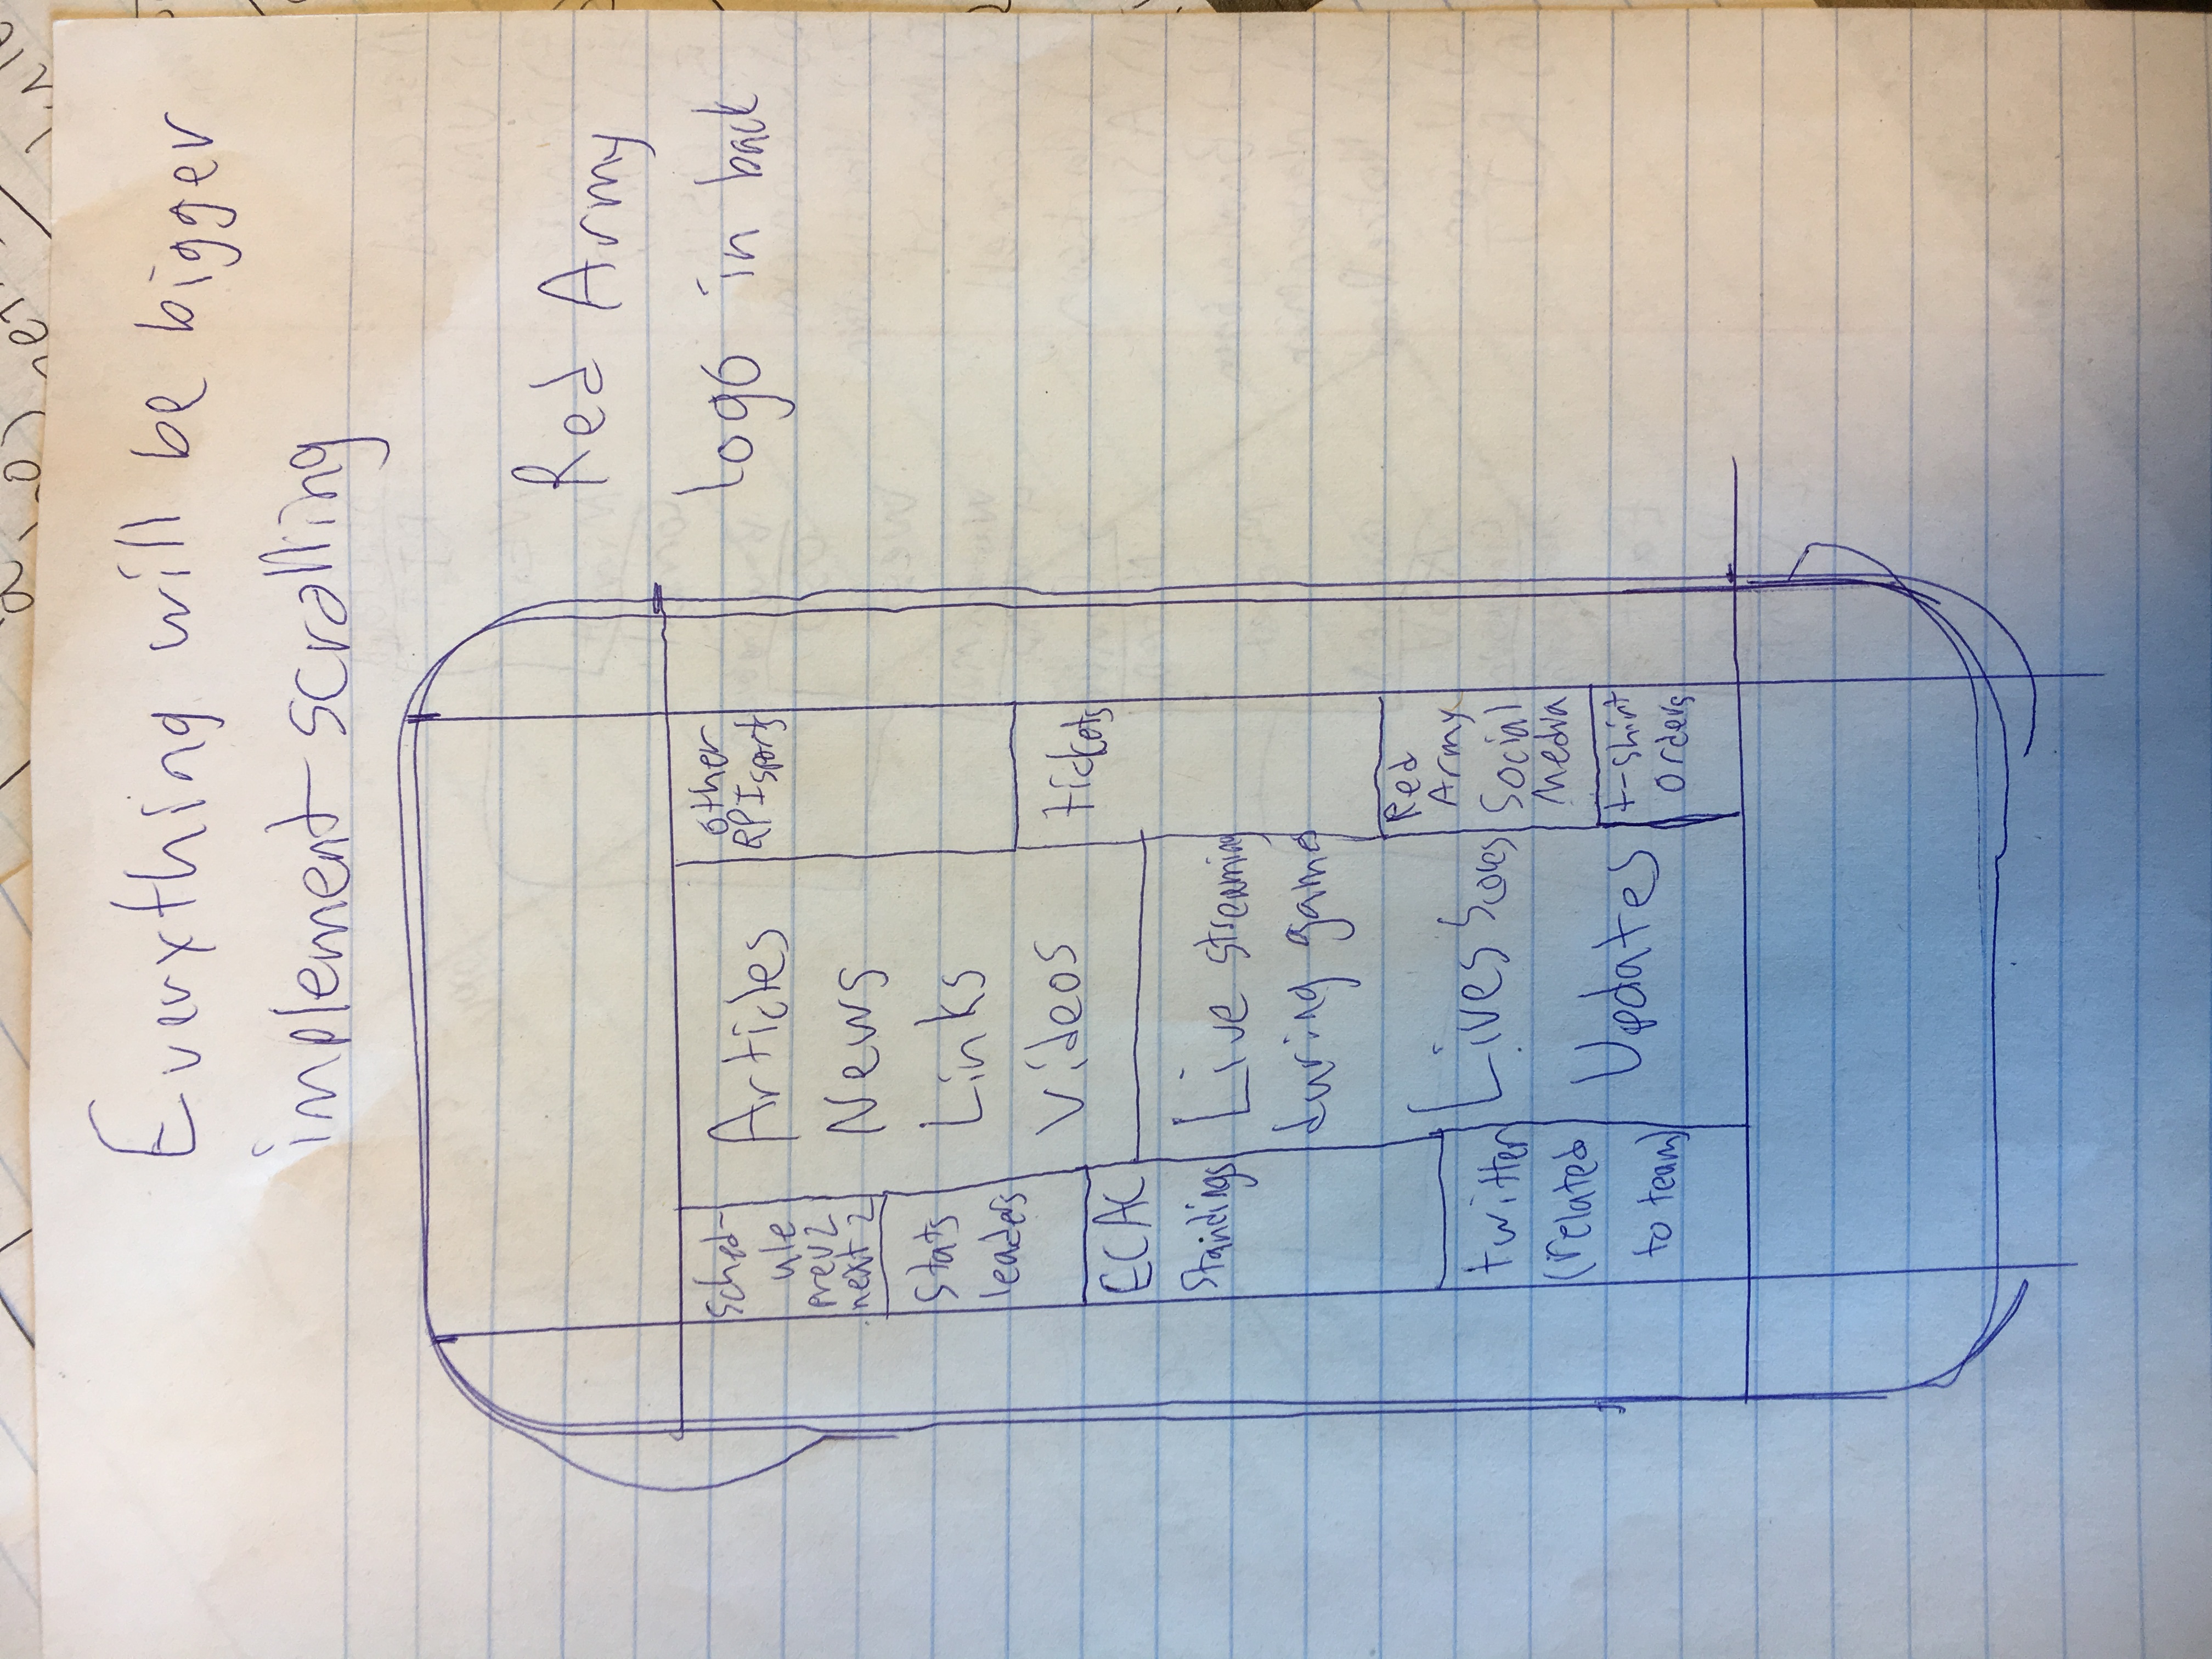 Everything will be bigger
implement scrolling
Red Army
logo in back
Sched-
ule
prev 2
next 2
Stats
leaders
ECAC
Standings
twitter
(related
to team)
Articles
News
Links
Videos
Live streaming
during game
Lives Scores
Updates
other
RPI sports
tickets
Red
Army
Social
Media
t-shirt
orders